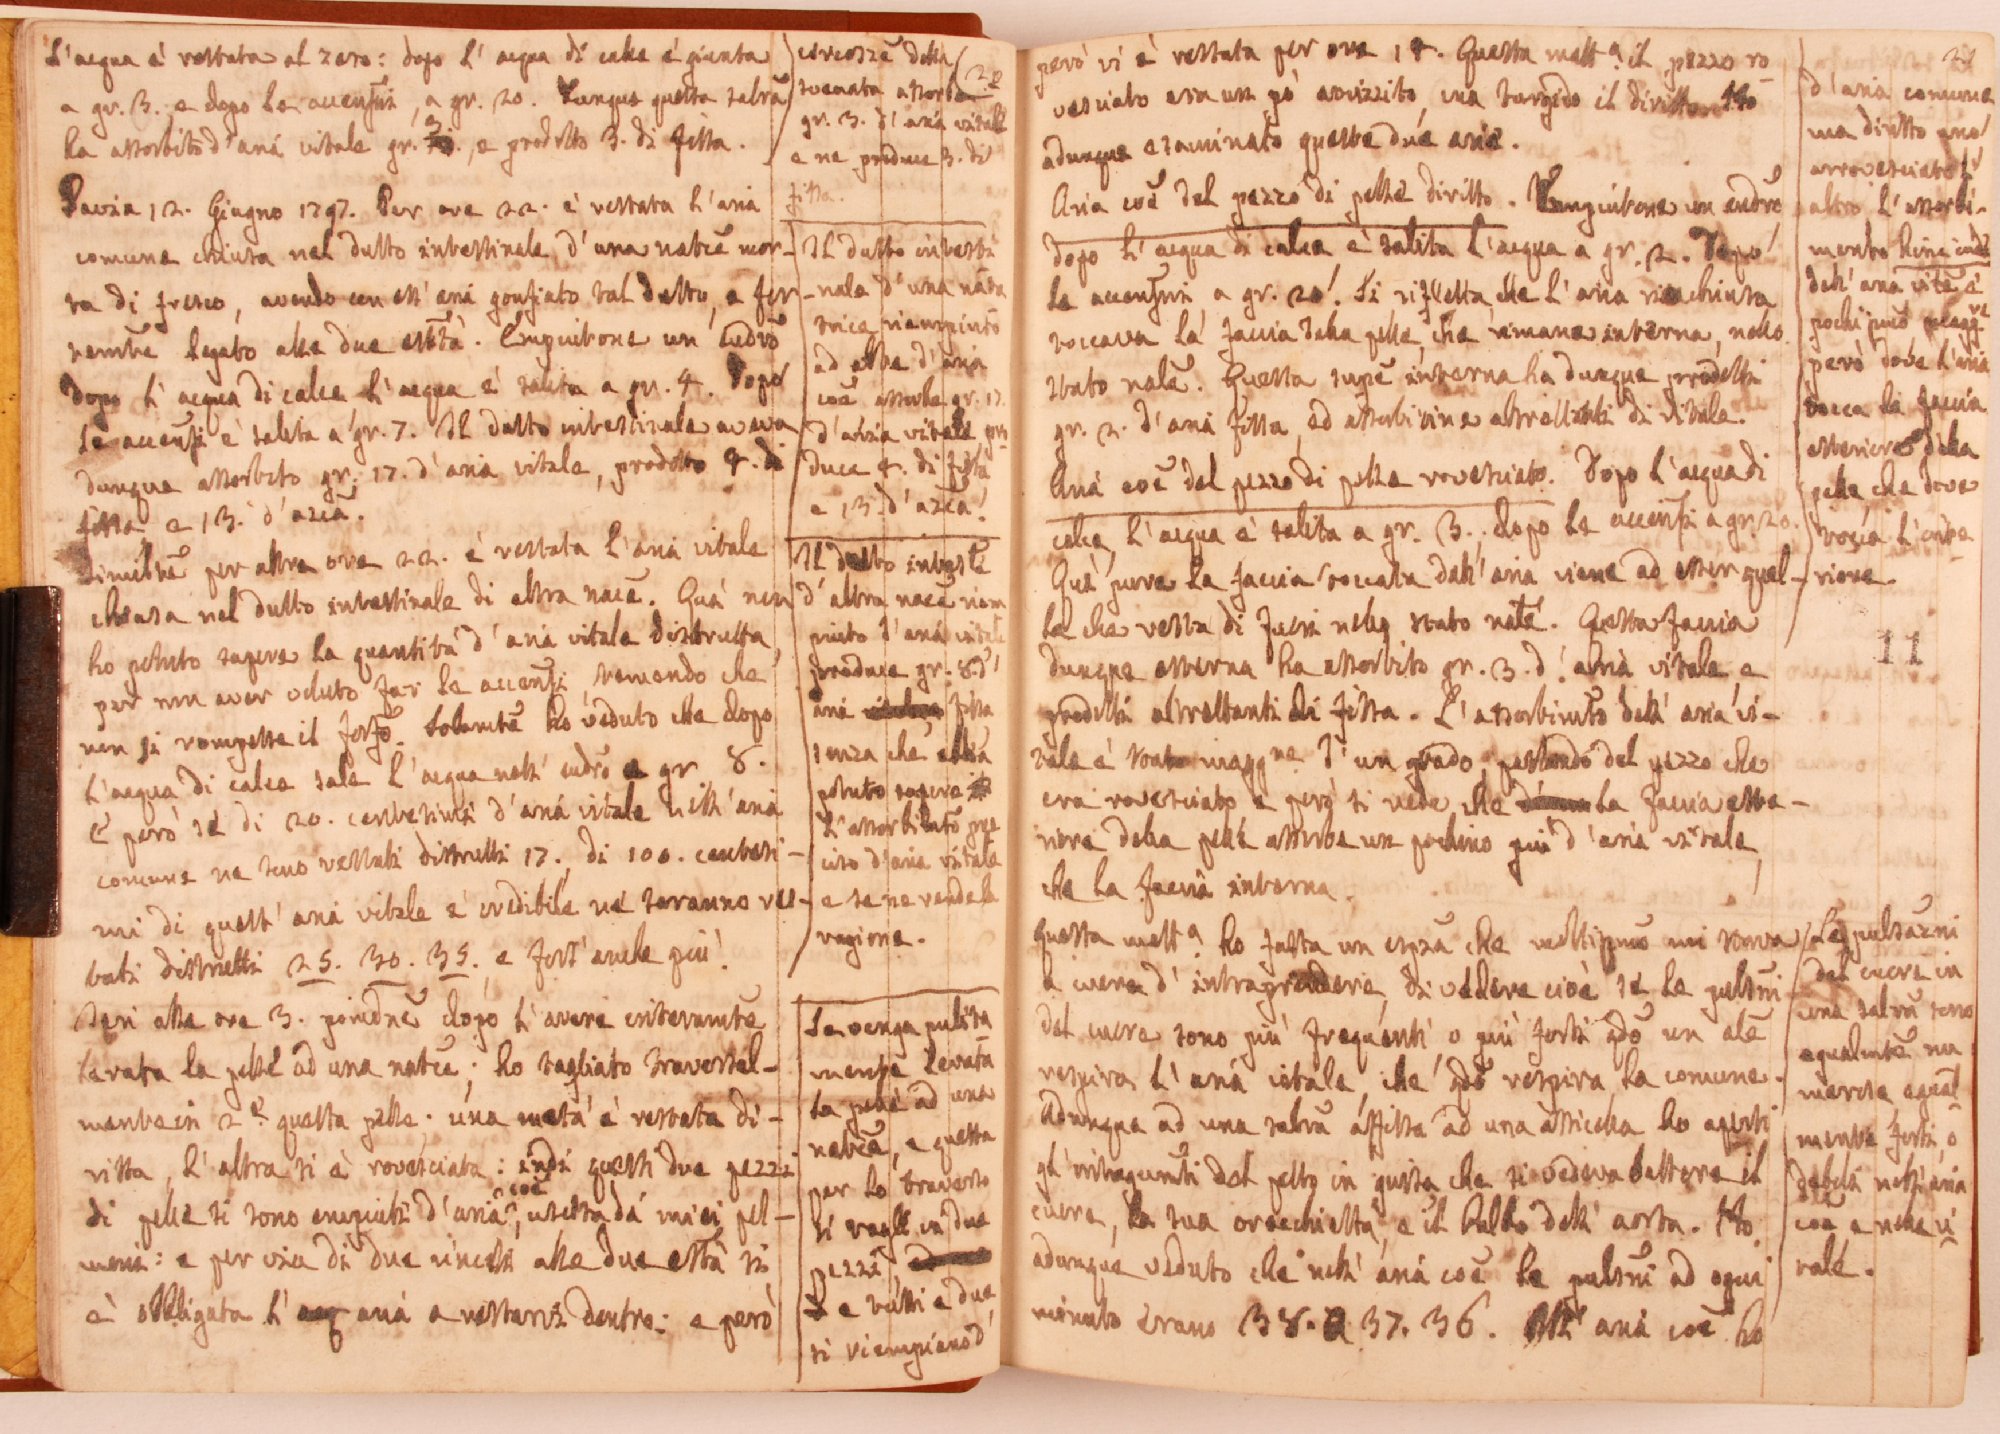 L'acqua è restata al zero: dopo l'acqua di calce è giunta
a gr. 3. e dopo le accensñi, a gr. 20. Dunque questa salrã
ha assorbito d'aria vitale gr. 3., e prodotto 3. di fissa.
Pavia 12. Giugno 1797. Per ore 22. è restata l'aria
comune chiusa nel dutto intestinale d'una natrẽ mor-
ta di fresco, avendo con ess'aria gonfiato tal dutto, e for-
temẽte legato alle due esttà. Empiutone un eudrõ
Dopo l'acqua di calce l'acqua è salita a gr. 4. Dopo
le accensñi è salita a gr. 7. Il dutto intestinale aveva
dunque assorbito gr. 17. d'aria vitale, prodotto 4. di
fissa, e 13. d'azcã.
Similmẽ per altre ore 22. è restata l'aria vitale
chiusa nel dutto intestinale di altra nacẽ. Quà non
ho potuto sapere la quantità d'aria vitale distrutta,
per non aver voluto far le accensñi, temendo che
non si rompesse il forfõ. Solamtẽ ho veduto che dopo
l'acqua di calce sale l'acqua nell'eudrõ a gr. 8.
E però se di 20. centesimi d'aria vitale nell'aria
comune ne sono restati distrutti 17, di 100. centesi-
mi di quest'aria vitale è credibile ne saranno res-
tati distrutti 25. 30. 35. e fors'anche più.
Ieri alle ore 3. pomdnẽ dopo l'avere interamtẽ
levata la pelle ad una natrẽ; ho tagliato traversal-
mente in 2.e questa pelle. una metà è restata di-
ritta, l'altra si è rovesciata: indi questi due pezzi
di pelle si sono empiuti d'aria coẽ, uscita da' miei pol-
moni: e per via di due vincoli alle due esttà si
è obbligata l' aria a restarsi dentro: e però
circosze della
svenata assorbe
gr. 3. d'aria vitale
e ne produce 3. di
fissa.
Il dutto intesti
nale d'una nata
trice riempiuto
ad altre d'aria
coẽ assorbe gr. 17.
d'aria vitale, pro
duce 4. di fissa
e 13. d'azcã.
Il dutto intestlẽ
d'altra nacẽ riem
piuto d'aria vitale
produce gr. 8. d'
aria fissa
senza che abbia
potuto sapere
l'assorbimtõ pre
ciso d'aria vitale
e se ne rende la
ragione.
Se venga pulita
mente levata
la pelle ad una
natrẽ, e questa
per lo traverso
si tagli in due
pezzi,
e tutti e due
si riempiano d'
però vi è restata per ore 14. Questa matta il pezzo ro-
vesciato era un pò avvizzito, ma turgido il diritto. Ho
adunque esaminato queste due arie.
Aria coẽ del pezzo di pelle diritto. Empiutone un eudrõ
dopo l'acqua di calce è salita l'acqua a gr. 2. Dopo
le accensñi a gr. 20. Si rifletta che l'aria rinchiusa
toccava la faccia della pelle, che rimane interna, nello
stato nalẽ. Questa supẽ interna ha dunque prodotti
gr. 2. d'aria fissa, ed assorbitine altrettanti di vitale.
Aria coẽ del pezzo di pelle rovesciato. Dopo l'acqua di
calce, l'acqua è salita a gr. 3., dopo le accensñi a gr. 20.
Quà pure la faccia toccata dall'aria viene ad esser quel-
la che resta di fuori nello stato natlẽ. Questa faccia
dunque esterna ha assorbito gr. 3. d'aria vitale e
prodotti altrettanti di fissa. L'assorbimtõ dell'aria vi-
tale è stato magg.re d'un grado, parlando del pezzo che
era rovesciato e però si vede che la faccia este-
riore della pelle assorbe un pochino più d'aria vitale,
che la faccia interna.
Questa matta ho fatta un espzã che moltissmõ mi stava
a cuore d'intraprendere, di vedere cioè se le pulsñi
del cuore sono più frequenti o più forti qdõ un alẽ
respira l'aria vitale, che qdõ respira la comune.
Adunque ad una salrã affissa ad una assicella ho aperti
gl'integumti del petto in guisa che si vedeva battere il
cuore, la sua orecchietta, e il bulbo dell'aorta. Ho
adunque veduto che nell'aria coẽ le pulsñi ad ogni
minuto erano 38. 37. 36. Nell'aria coẽ ho
d'aria comune
ma diritto uno
arrovesciato l'
altro l'assorbi-
mento
dell'aria vitlẽ è
pochissmõ magg.re
però dove l'aria
tocca la faccia
esteriore della
pelle, che dove
tocca l'inte-
riore.
11
Le pulsazni
del cuore in
una salrã sono
egualmtẽ nu
merose, egual-
mente forti, o
deboli nell'aria
coẽ, e nella vi
tale.